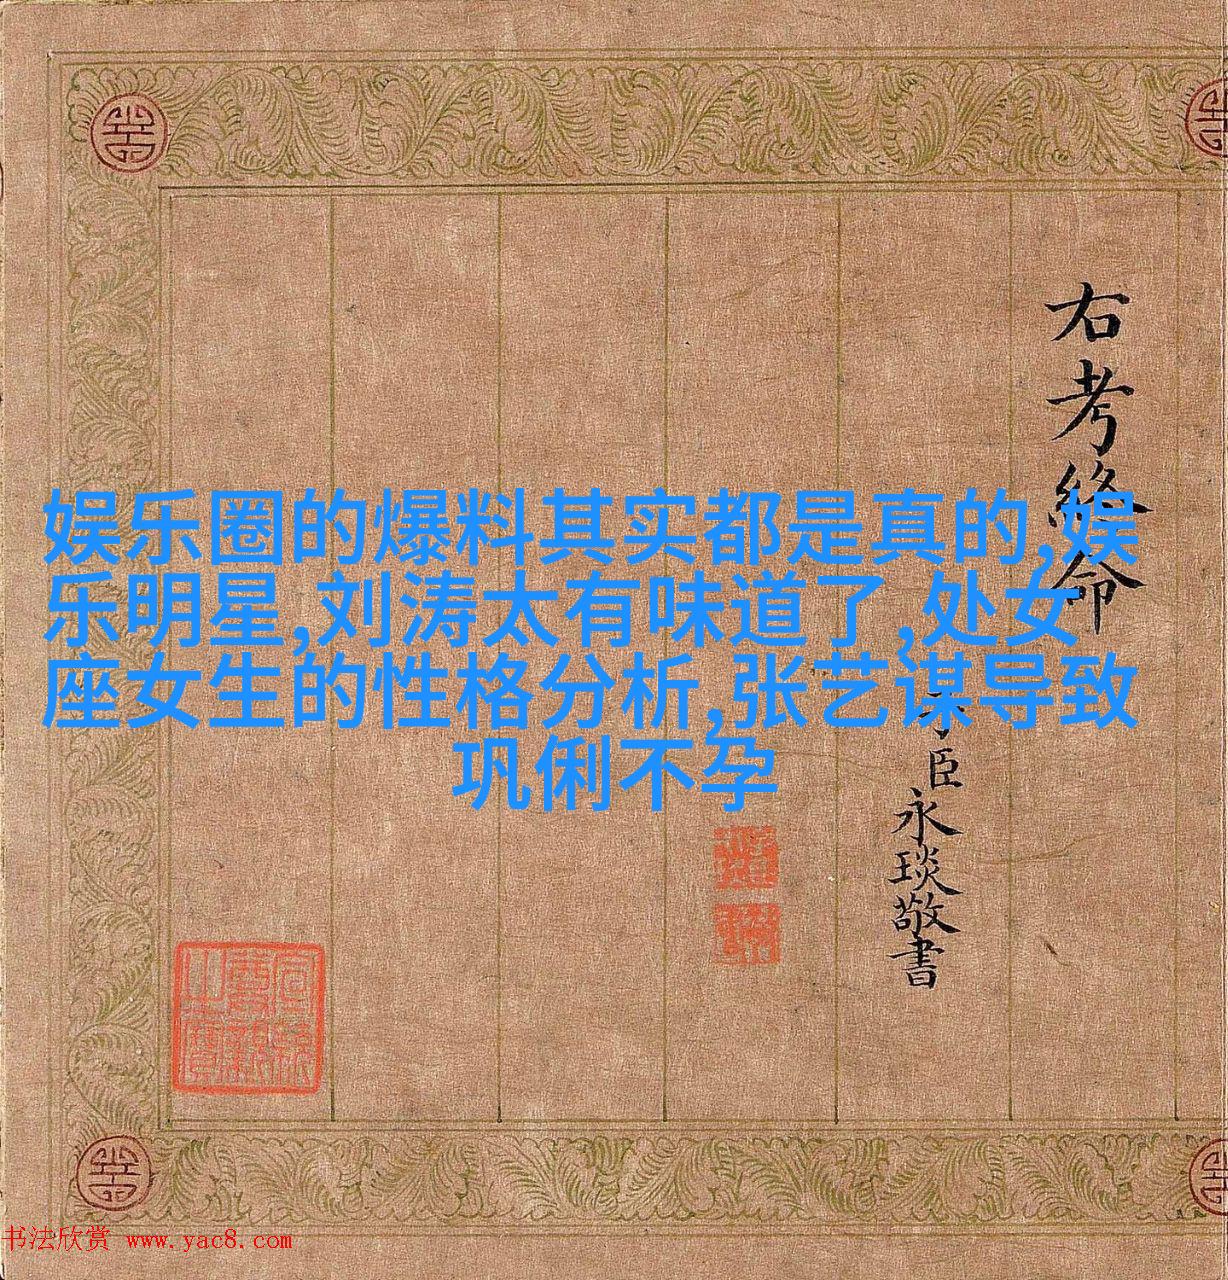 娱乐圈的爆料其实都是真的,娱
乐明星,刘涛太有味道了,处女
座女生的性格分析,张艺谋导致
巩俐不孕
右考終命
臣永琰敬書
书法欣赏 www.yac8.com